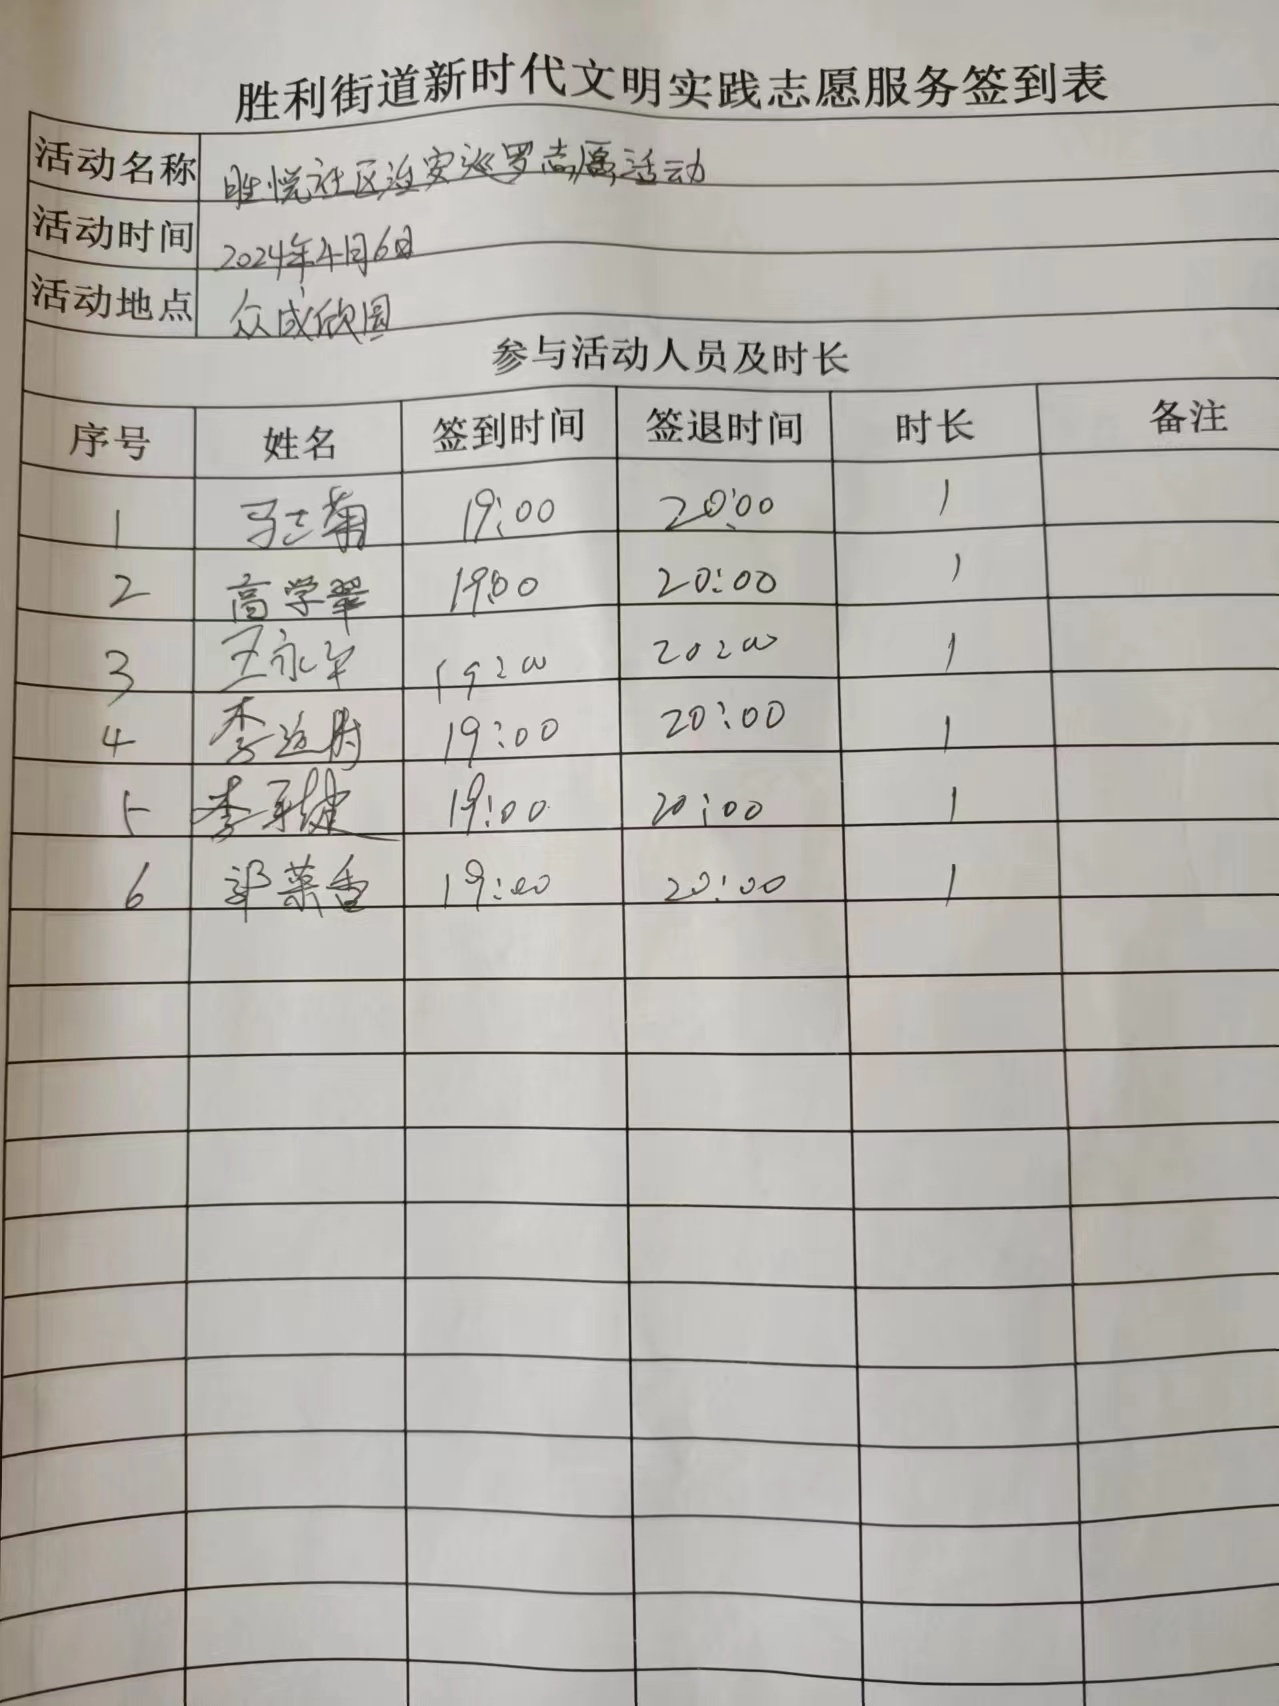 胜利街道新时代文明实践志愿服务签到表
活动名称 胜悦社区治安巡罗志愿活动
活动时间 2024年4月6日
活动地点 众成欣园
参与活动人员及时长
序号 姓名 签到时间 签退时间 时长 备注
1 马兰菊 19:00 20:00 1
2 高学翠 19:00 20:00 1
3 王永军 19:00 20:00 1
4 李 19:00 20:00 1
5 李 19:00 20:00 1
6 郭菜香 19:00 20:00 1